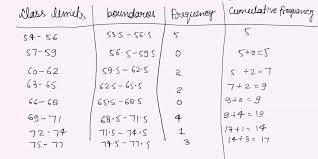 Class limits boundaries Frequency Cumulative frequency
54 - 56 53.5 - 56.5 5 5
57 - 59 56.5 - 59.5 0 5+0=5
60 - 62 59.5 - 62.5 2 5 +2 = 7
63 - 65 62.5 - 65.5 2 7+2 = 9
66 - 68 65.5 - 68.5 0 9+0 = 9
69 - 71 68.5 - 71.5 4 9+4 = 13
72 - 74 71.5 - 74.5 1 13+1 = 14
75 - 77 74.5 - 77.5 3 14+3 = 17